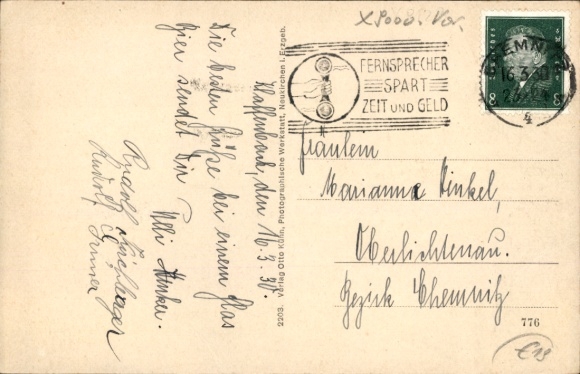 X9000. Vor.
CHEMNITZ
16.3.30
4
8 8
FERNSPRECHER
SPART
ZEIT UND GELD
Klaffenbach, den 16.3.30.
Die besten Grüße bei einem Glas
Bier sendet Dir
Willi
Rudolf
Rudolf
2203. Verlag Otto Kühn, Photographische Werkstatt, Neukirchen i. Erzgeb.
Fräulein
Marianne Dinkel,
Oberlichtenau.
Bezirk Chemnitz
776
€19